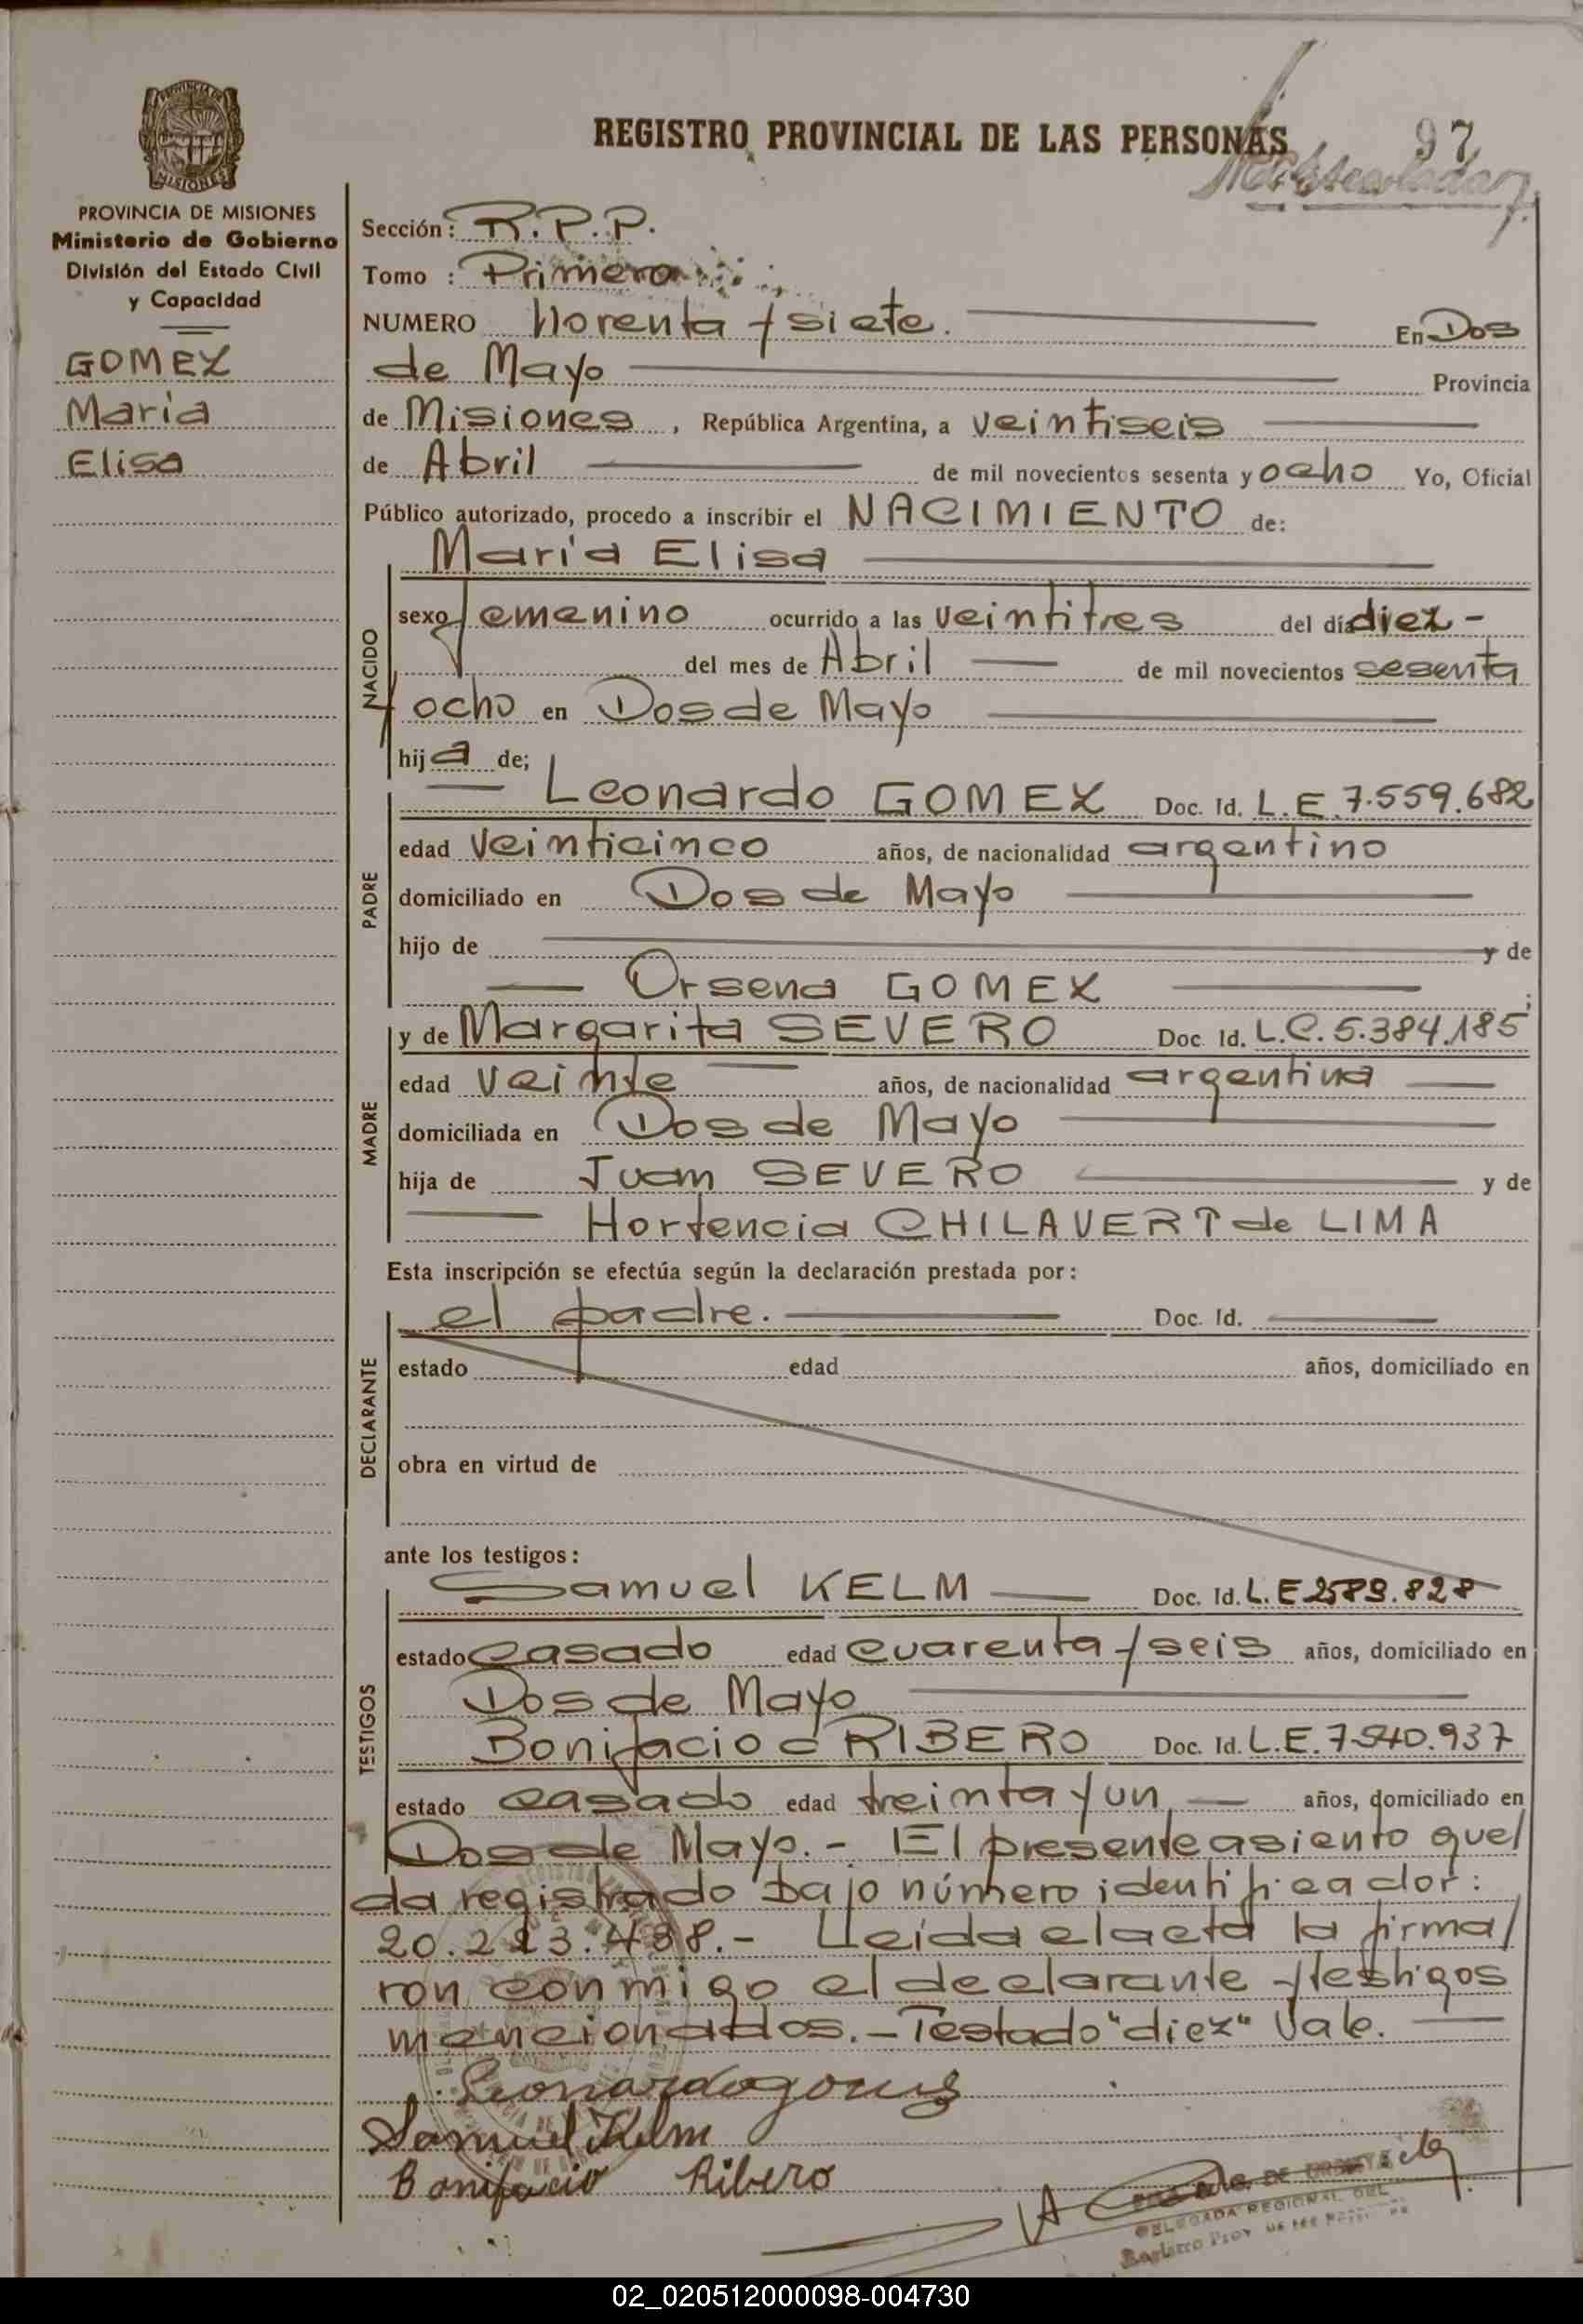 REGISTRO PROVINCIAL DE LAS PERSONAS
97
PROVINCIA DE MISIONES
Ministerio de Gobierno
División del Estado Civil
y Capacidad
GOMEZ
Maria
Elisa
Sección: R.P.P.
Tomo : Primero
NUMERO Norenta y siete. En Dos
de Mayo Provincia
de Misiones, República Argentina, a veintiseis
de Abril de mil novecientos sesenta y ocho Yo, Oficial
Público autorizado, procedo a inscribir el NACIMIENTO de:
Maria Elisa
NACIDO
sexo femenino ocurrido a las veintitres del día diez -
del mes de Abril de mil novecientos sesenta
y ocho en Dos de Mayo
hija de;
PADRE
Leonardo GOMEZ Doc. Id. L.E. 7.559.682
edad veinticinco años, de nacionalidad argentino
domiciliado en Dos de Mayo
hijo de y de
Orsena GOMEZ
MADRE
y de Margarita SEVERO Doc. Id. L.C. 5.384.185
edad veinte años, de nacionalidad argentina
domiciliada en Dos de Mayo
hija de Juan SEVERO y de
Hortencia CHILAVERT de LIMA
Esta inscripción se efectúa según la declaración prestada por:
DECLARANTE
el padre. Doc. Id.
estado edad años, domiciliado en
obra en virtud de
ante los testigos:
TESTIGOS
Samuel KELM Doc. Id. L.E 2589.828
estado casado edad cuarenta y seis años, domiciliado en
Dos de Mayo
Bonifacio RIBERO Doc. Id. L.E. 7.540.937
estado casado edad treinta y un años, domiciliado en
Dos de Mayo. - El presente asiento que/
da registrado bajo número identificador:
20.223.438.- Leída el acta la firma/
ron conmigo el declarante y testigos
mencionados. - Testado "diez" Vale.
Leonardo gomes
Samuel Kelm
Bonifacio Ribero
DELEGADA REGIONAL DEL
02_020512000098-004730